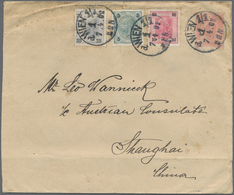 WIEN 1/1
WIEN 1/1
Mr. Leo Wannieck
to Austrian Consulate
Shanghai
China